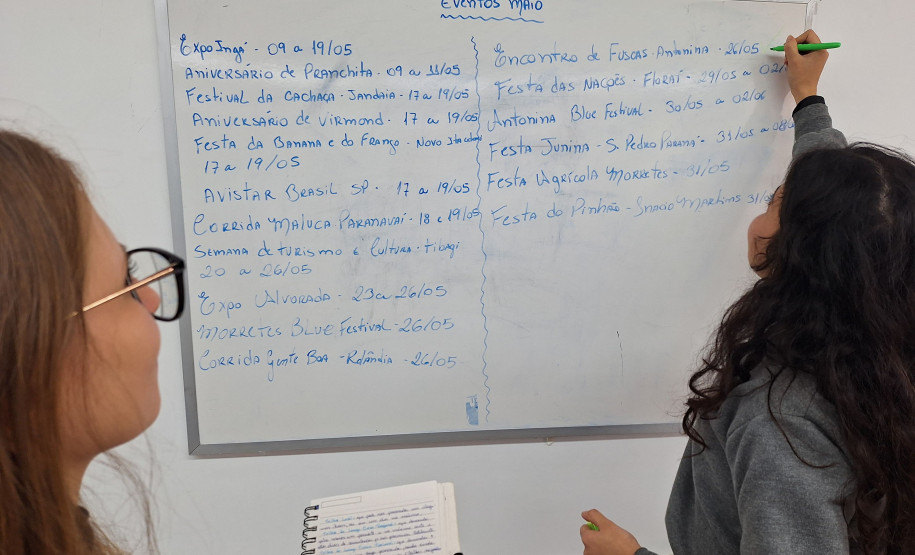 EVENTOS MAIO
Expo Ingá - 09 a 19/05
Aniversário de Pranchita - 09 a 11/05
Festival da Cachaça - Jandaia - 17 a 19/05
Aniversário de Virmond - 17 a 19/05
Festa da Banana e do Frango - Novo
17 a 19/05
Avistar Brasil SP - 17 a 19/05
Corrida Maluca Paranavaí - 18 e 19/05
Semana de turismo e Cultura - Tibagi
20 a 26/05
Expo Alvorada - 23 a 26/05
Morretes Blue Festival - 26/05
Corrida Gente Boa - Rolândia - 26/05
Encontro de Fuscas - Antonina - 26/05
Festa das Nações - Floraí - 29/05 a 02/
Antonina Blue Festival - 30/05 a 02/06
Festa Junina - S. Pedro Paraná - 31/05 a
Festa Agrícola Morretes - 31/05
Festa do Pinhão - Inácio Martins 31/05